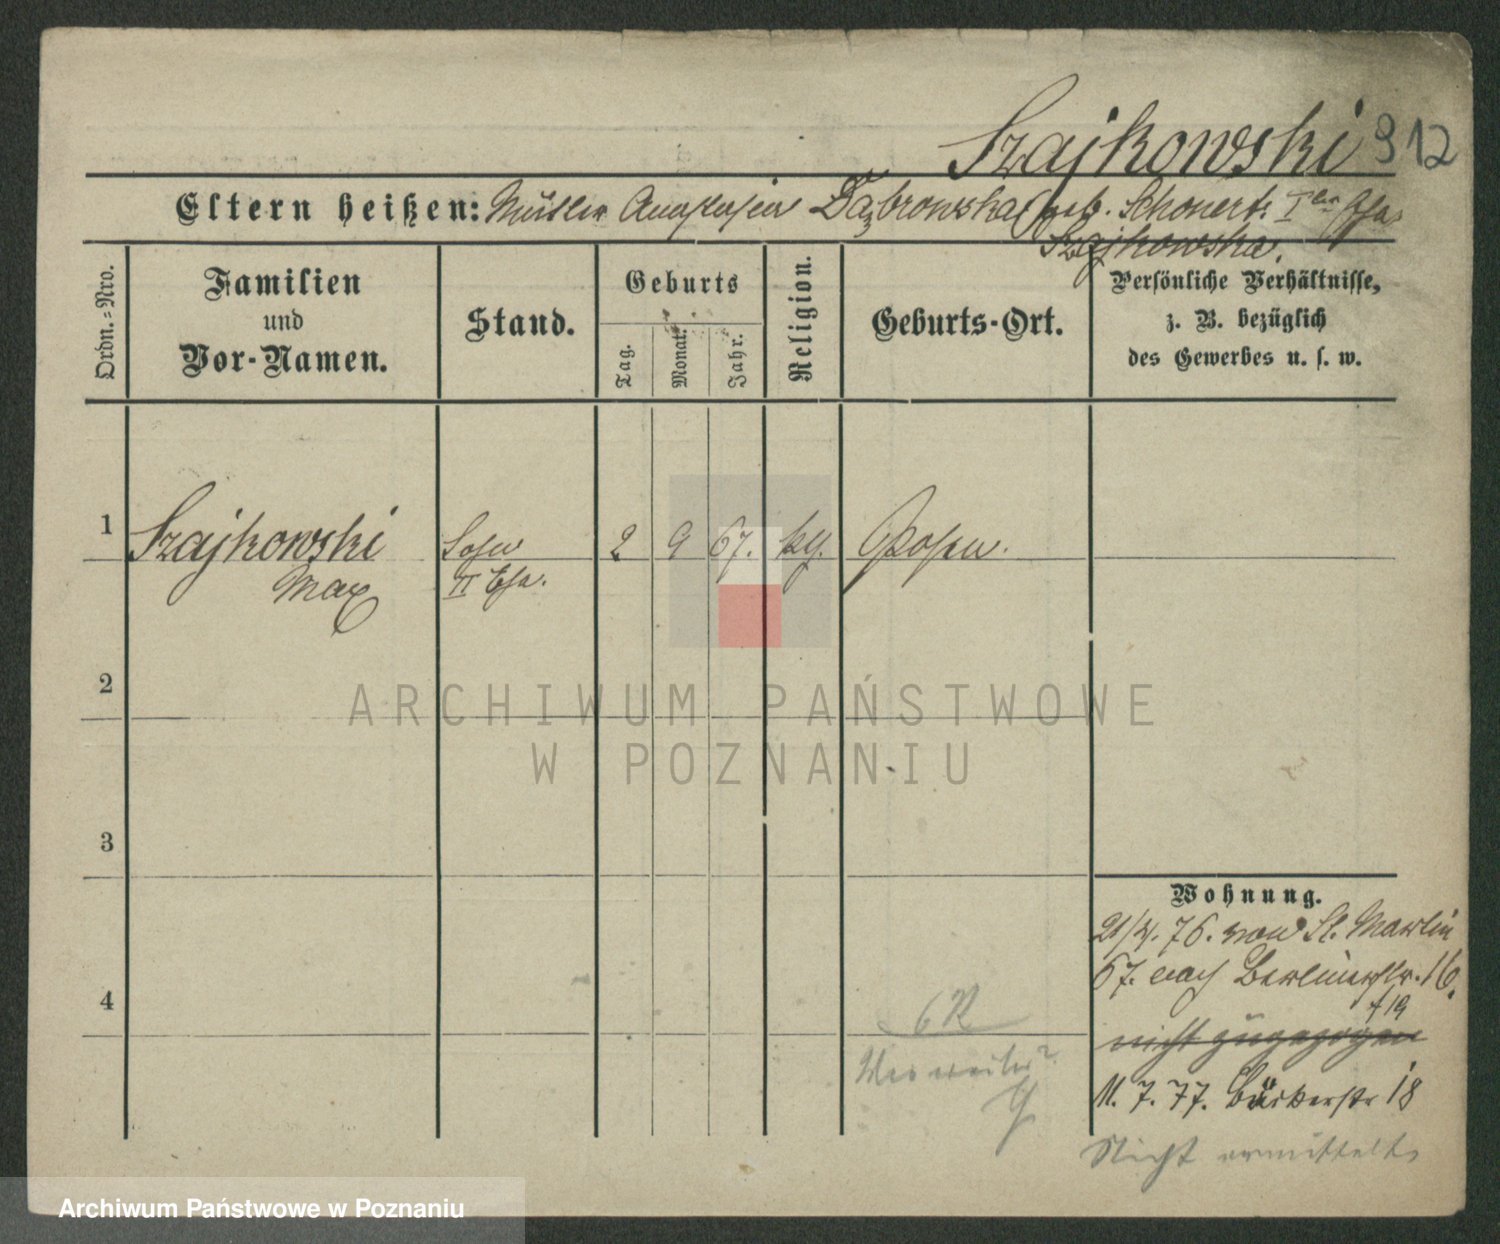 Szajkowski 912
Eltern heißen: Mutter Anastasia Dąbrowska geb. Schonert, I ter Ehe
Szajkowska.
Ordn.=Nro.
Familien
und
Vor-Namen.
Stand.
Geburts
Tag.
Monat.
Jahr.
Religion.
Geburts-Ort.
Persönliche Verhältnisse,
z. B. bezüglich
des Gewerbes u. s. w.
1 Szajkowski Sohn 2 9 67. kth. Posen.
Max II Ehe.
2
3
4
Wohnung.
21/4. 76. von St. Martin
67. nach Berlinerstr. 16.
nicht zugezogen
11. 7. 77. Bäckerstr 18
Nicht ermittelt
6R
Wo weiter?
ARCHIWUM PAŃSTWOWE
W POZNANIU
Archiwum Państwowe w Poznaniu